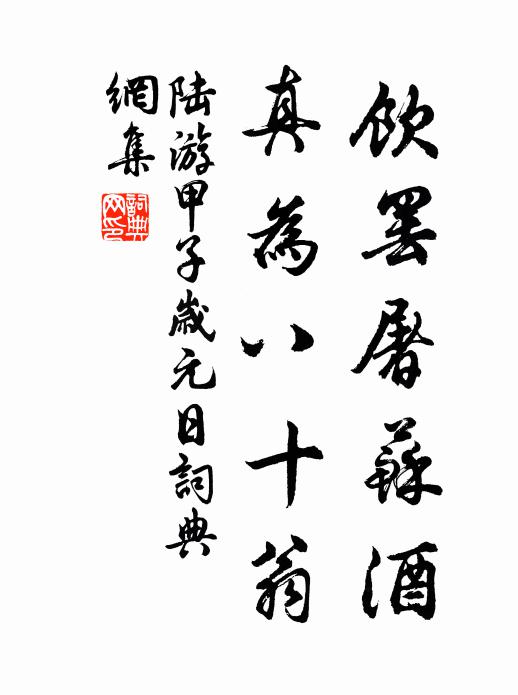 飲罷屠蘇酒
真為八十翁
陸游甲子歲元日詞典
網集
詞典
网印